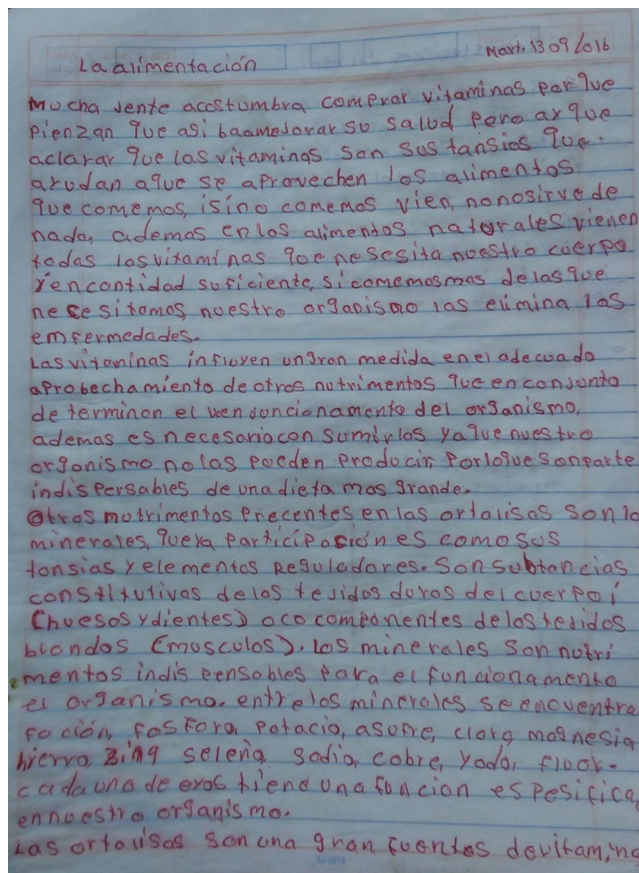 Mart. 13 09 2016
La alimentación
Mucha jente acostumbra comprar vitaminas porque
pienzan que asi baamejorar su salud pero ay que
aclarar que las vitaminas son sus tansias que.
ayudan aque se aprovechen los alimentos
que comemos, isino comemos vien, nonosirve de
nada, ademas en los alimentos naturales vienen
todas las vitaminas que nesesita nuestro cuerpo
yen cantidad suficiente, si comemos mas delas que
necesitamos nuestro organismo las elimina las
emfermedades.
Las vitaminas influyen ungran medida en el adecuado
aprobechamiento de otros nutrimentos que en conjunto
determinan el vuen funcionamento del organismo,
ademas es necesario con sumirlos ya que nuestro
organismo no las pueden producir por loque son parte
indispensables de una dieta mas grande.
Otros nutrimentos precentes en las ortalisas son lo
minerales, queya participacion es como sus
tansias y elementos Reguladores. Son subtancias
constitutivas delos tejidos duros del cuerpo i
(huesos y dientes) oco componentes delos tejidos
blandos (musculos). Los minerales son nutri
mentos indispensables para el funcionamento
el organismo. entre los minerales se encuentra
fosforo, potacio, asufre, cloro, magnesia
hierro, zing seleno, sodio, cobre, yodo, fluor.
cada uno de eyos tiene una funcion espesifica
en nuestro organismo.
Las ortalisas son una gran fuentes devitamina